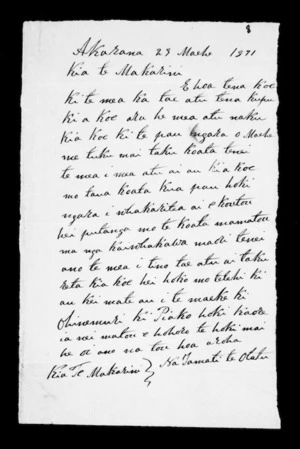 8
Akarana 23 Maehe 1871
Kia te Makarini
E hoa tena koe
ki te mea ka tae atu tena kupu
ki a koe ara he mea atu naku
kia koe ki te pau ngara o Maehe
me tuku mai taku koata tenei
te mea i mea atu ai au kia koe
mo taua koata kira pau hoki
ngara i whakaritea ai e koutou
hei putanga mo te koata mamatou
ma nga kaiwhakawa maori tenei
ano te mea i tino tae atu ai taku
reta kia koe hei hoko mo tetehi ki
au kei mate au i te maeke ki
Ohinemuri ki Piako hoki kaore
ia nei matou e hohoro te hoki mai
he oi ano na tou hoa aroha
Kia Te Makarini Na Tamati te